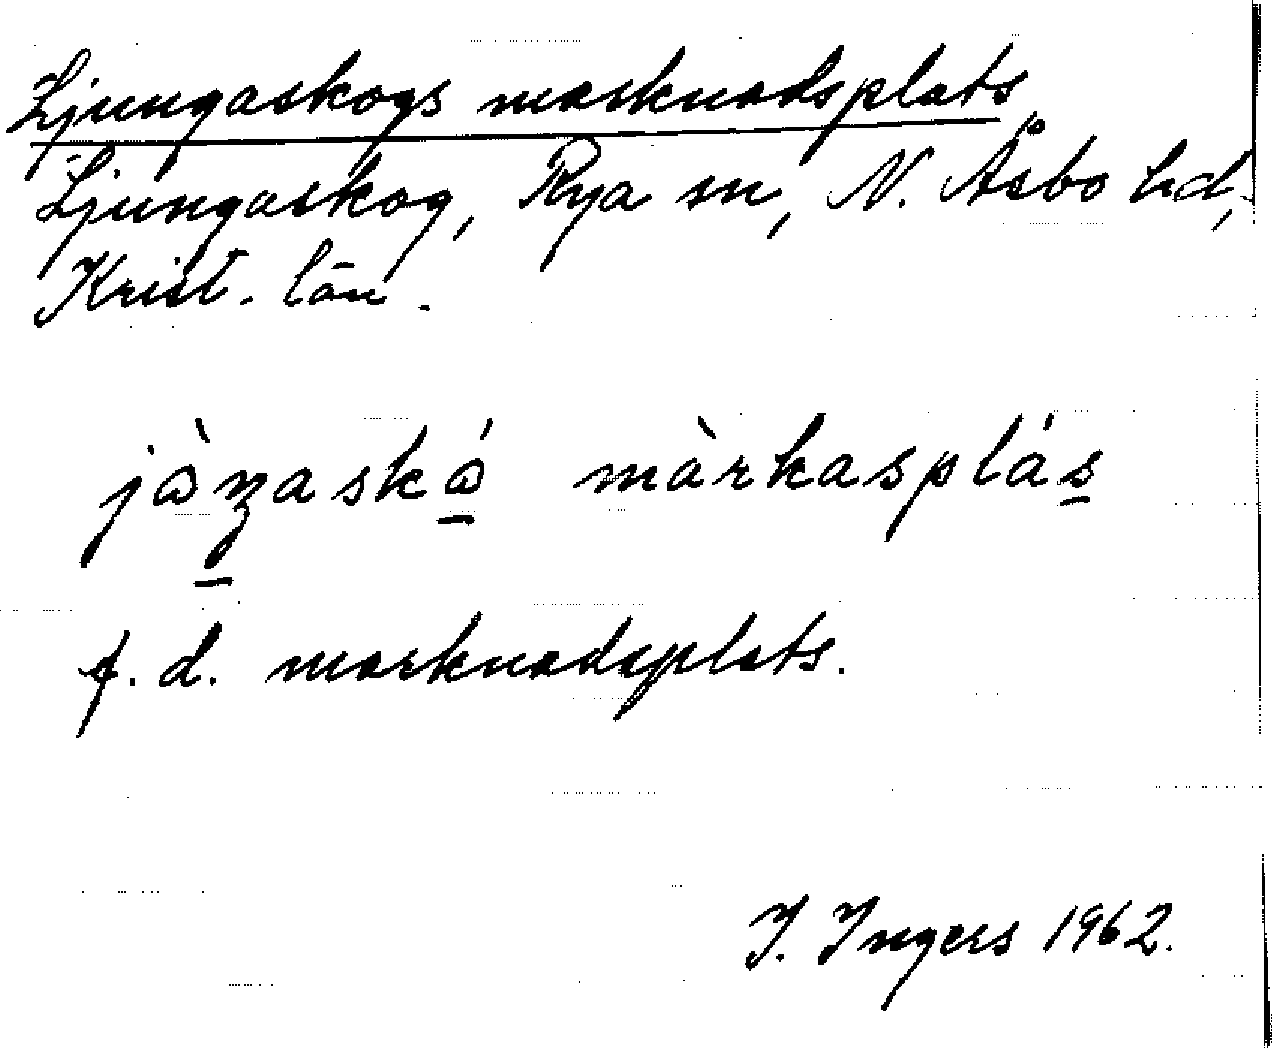 Ljungaskogs marknadsplats
Ljungaskog, Rya sn, N. Åsbo hd,
Krist. län.
màrkasplás
f. d. marknadsplats.
I. Ingers 1962.